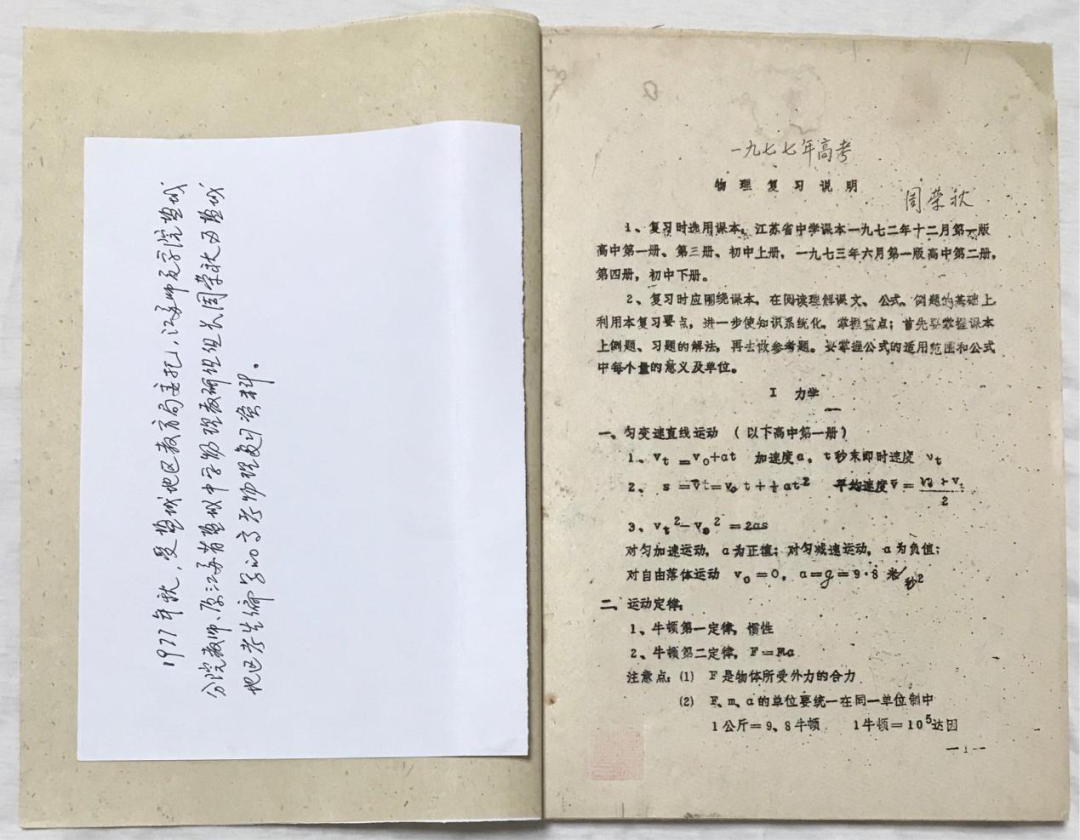 1977年秋，受盐城地区教育局委托，江苏师范学院盐城
分院教师、原江苏省盐城中学物理教研组组长周荣秋为盐城
地区考生编写的高考物理复习资料。
一九七七年高考
物理复习说明
周荣秋
1、复习时选用课本，江苏省中学课本一九七二年十二月第一版
高中第一册、第三册、初中上册，一九七三年六月第一版高中第二册，
第四册，初中下册。
2、复习时应围绕课本，在阅读理解课文、公式、例题的基础上
利用本复习要点，进一步使知识系统化，掌握重点；首先要掌握课本
上例题、习题的解法，再去做参考题。要掌握公式的适用范围和公式
中每个量的意义及单位。
I 力学
一、匀变速直线运动 （以下高中第一册）
1、vt＝v0+at 加速度a，t秒末即时速度 vt
2、 s＝v̄t＝v0t＋½at² 平均速度v̄＝(v0＋vt)/2
3、vt²－v0²＝2as
对匀加速运动，a为正值；对匀减速运动，a为负值；
对自由落体运动 v0＝0，a＝g＝9·8 米/秒2
二、运动定律；
1、牛顿第一定律，惯性
2、牛顿第二定律，F＝ma
注意点：⑴ F是物体所受外力的合力
⑵ F、m、a的单位要统一在同一单位制中
1公斤＝9、8牛顿 1牛顿＝10⁵达因
—1—